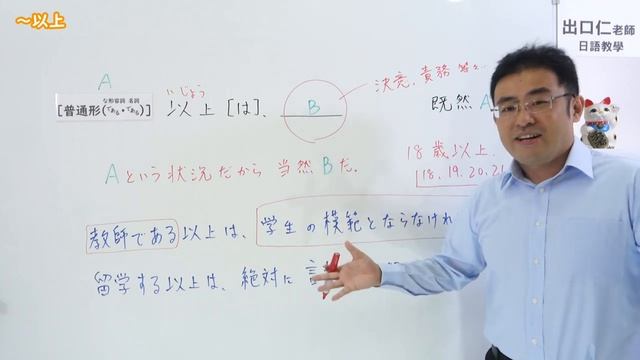 ～以上
出口仁老師
日語教學
A
な形容詞 名詞
[普通形(である・である)]
いじょう
以上[は]、
B
決意、責務 等々…
既然A
Aという状況だから 当然Bだ.
18歳以上.
18.19.20.21
教師である以上は、学生の模範とならなけれ
留学する以上は、絶対に